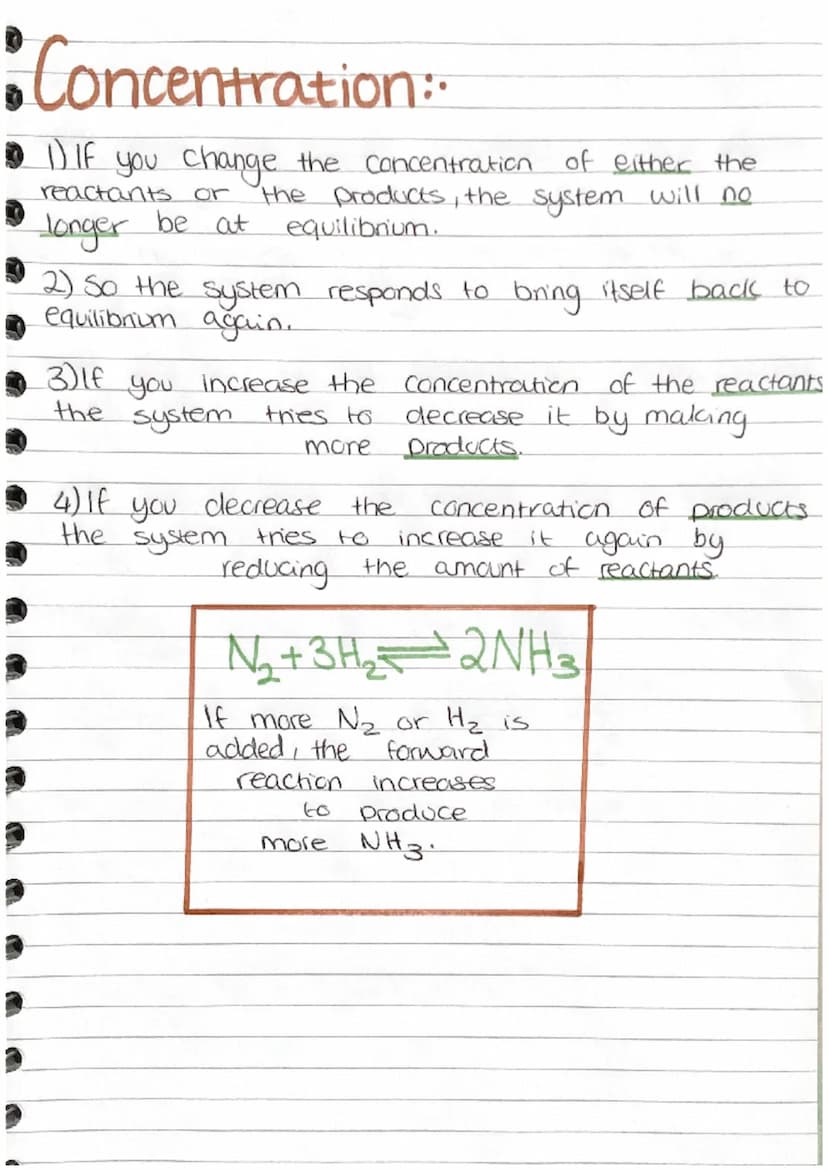 Concentration:·
1) If you change the concentration of either the
reactants or the products, the system will no
longer be at equilibrium.
2) So the system responds to bring itself back to
equilibrium again.
3) If you increase the concentration of the reactants
the system tries to decrease it by making
more products.
4) If you decrease the concentration of products
the system tries to increase it again by
reducing the amount of reactants.
N₂ + 3H₂ ⇌ 2NH₃
If more N₂ or H₂ is
added, the forward
reaction increases
to produce
more NH₃.